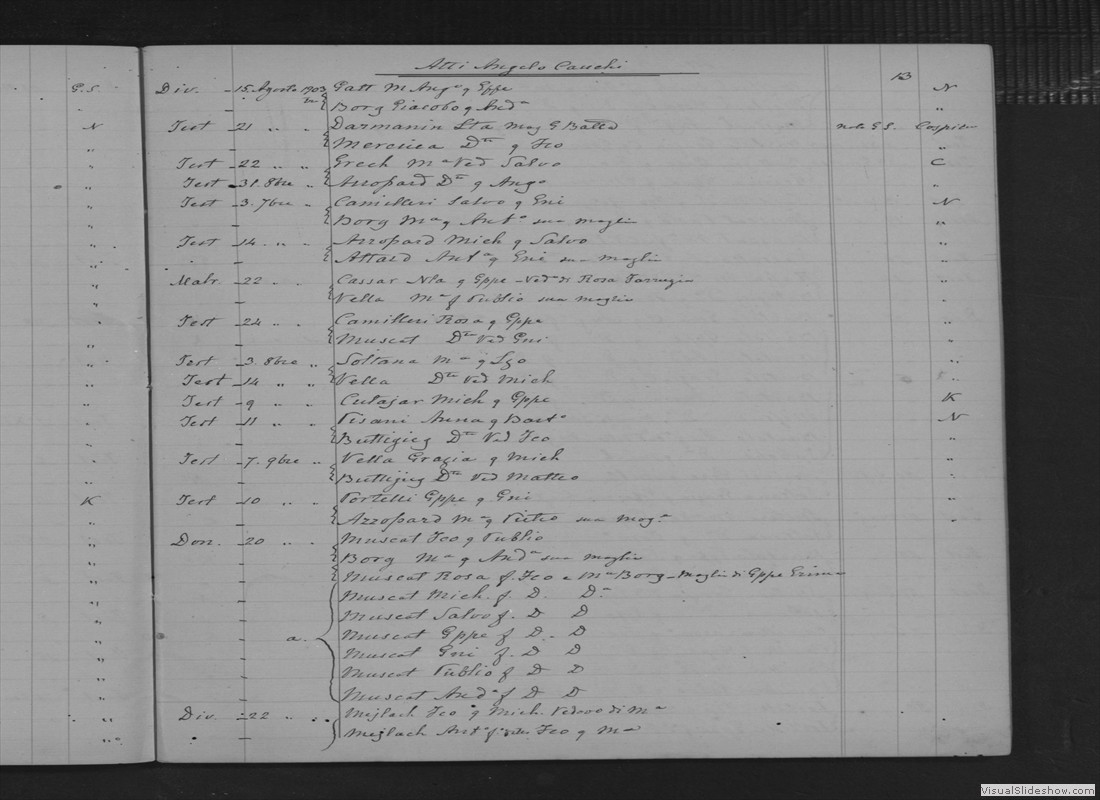 Atti Angelo Cauchi
13
G.S. Div. 15 Agosto 1703 Gatt M Ang.a q Gppe N
Borg Giacobo q And.a "
N Test 21 " " Darmanin Sta mog G. Batta nota G.S. Cospicua
" Mercieca D.ta q Fco "
" Test 22 " " Grech M.a Ved Salvo C
" Test 31. 8bre " Azzopard D.co q Ang.o "
" Test 3. 7bre " Camilleri Salvo q Gni N
" Borg M.a q Ant.o sua moglie "
" Test 14 " " Azzopard Mich q Salvo "
" Attard Ant.a q Gni sua moglie "
" Matr. 22 " " Cassar Nla q Gppe - Ved.o di Rosa Farrugia
" Vella M.a f Publio sua moglie
" Test 24 " " Camilleri Rosa q Gppe "
" Muscat D.ca Ved Gni "
" Test 3. 8bre " Soltana M.a q Lzo "
" Test 14 " " Vella D.ca Ved Mich "
" Test 9 " " Cutajar Mich q Gppe K
" Test 11 " " Pisani Anna q Bart.o N
" Buttigieg D.ca Ved Fco "
" Test 7. 9bre " Vella Grazia q Mich "
" Buttigieg D.ca Ved Matteo "
K Test 10 " " Portelli Gppe q Gni "
" Azzopard M.a q Pietro sua mog.e "
" Don. 20 " " Muscat Fco q Publio
" Borg M.a q And.a sua moglie
" Muscat Rosa f. Fco e M.a Borg - Moglie di Gppe Grima
" Muscat Mich. f D. D.a
" Muscat Salvo f D D
" a. Muscat Gppe f D. D
" Muscat Gni f. D D
" Muscat Publio f D D
" Muscat And.a f D D
" Div. 22 " " Mejlach Fco q Mich. Vedovo di M.a
" Mejlach Ant.o f Fco q M.a
VisualSlideshow.com